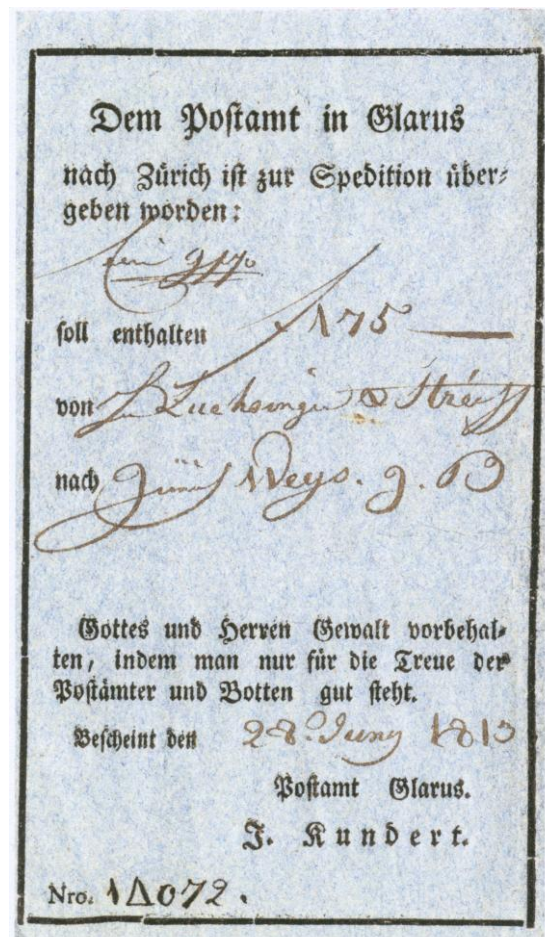 Dem Postamt in Glarus
nach Zürich ist zur Spedition über-
geben worden:
soll enthalten 175
von Luchsinger &
nach
Gottes und Herren Gewalt vorbehal-
ten, indem man nur für die Treue der
Postämter und Botten gut steht.
Bescheint den 28. Juny 1813
Postamt Glarus.
J. Kundert.
Nro.